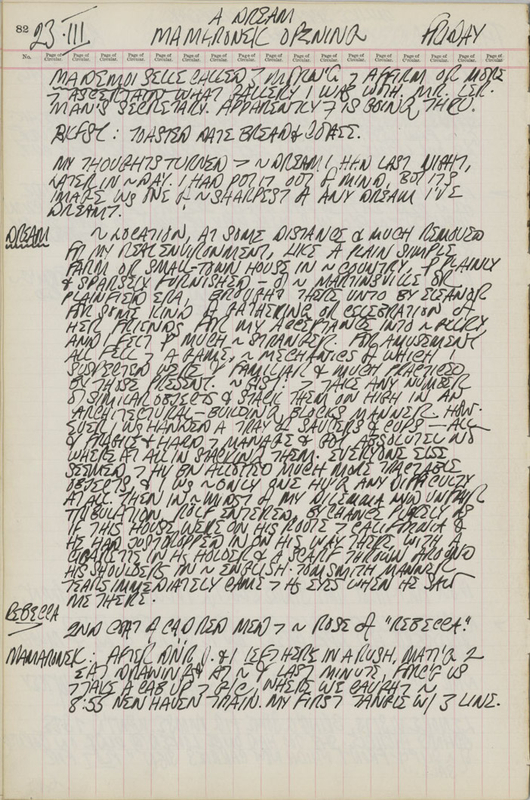 A DREAM
82 23·III MAMARONEK OPENING FRIDAY
No. Page of Circular. Page of Circular. Page of Circular. Page of Circular. Page of Circular. Page of Circular. Page of Circular. Page of Circular. Page of Circular. Page of Circular. Page of Circular. Page of Circular.
MADEMOISELLE CALLED AFFIRM OR MORE
ASCERTAIN WHAT GALLERY I WAS WITH. MR. LER-
MAN'S SECRETARY. APPARENTLY IS GOING THRU.
BKFST: TOASTED DATE BREAD & COFFEE.
MY THOUGHTS TURNED > ~ DREAM I HAD LAST NIGHT,
LATER IN ~ DAY. I HAD PUT IT OUT OF MIND, BUT ITS
IMAGE WS ONE OF ~ SHARPEST OF ANY DREAM I'VE
DREAMT.
DREAM ~ LOCATION, AT SOME DISTANCE & MUCH REMOVED
FM MY REAL ENVIRONMENT, LIKE A PLAIN SIMPLE
FARM OR SMALL-TOWN HOUSE IN ~ COUNTRY, PLAINLY
& SPARSELY FURNISHED - OF ~ MARTINSVILLE OR
PLAINFIELD ERA, BROUGHT THERE UNTO BY ELEANOR
FOR SOME KIND OF GATHERING OR CELEBRATION OF
HER FRIENDS FOR MY ACCEPTANCE INTO ~ GALLERY
AND I FELT MUCH ~ STRANGER. FOR AMUSEMENT
ALL FELL > A GAME, ~ MECHANICS OF WHICH I
SUSPECTED WERE FAMILIAR & MUCH PRACTICED
BY THOSE PRESENT. ~ GIST: > TAKE ANY NUMBER
OF SIMILAR OBJECTS & STACK THEM ON HIGH IN AN
ARCHITECTURAL - BUILDING BLOCKS MANNER. HOW-
EVER I WS HANDED A TRAY OF SAUCERS & CUPS - ALL
FRAGILE & HARD > MANAGE & GOT ABSOLUTELY NO
WHERE AT ALL IN STACKING THEM. EVERYONE ELSE
SEEMED > HV BN ALLOTTED MUCH MORE TRACTABLE
OBJECTS & I WS ~ ONLY ONE HVG ANY DIFFICULTY
AT ALL. THEN IN ~ MIDST OF MY DILEMMA AND UNFAIR
TRIBULATION, ROLF ENTERED, BY CHANCE PURELY AS
IF THIS HOUSE WERE ON HIS ROUTE > CALIFORNIA &
HE HAD JUST DROPPED IN ON HIS WAY THERE WITH A
CIGARETTE IN HIS HOLDER & A SCARF THROWN AROUND
HIS SHOULDERS IN ~ ENGLISH TOM SMITH MANNER
TEARS IMMEDIATELY CAME > HS EYES WHEN HE SAW
ME THERE.
REBECCA 2ND COAT OF CAD RED MED > ~ ROSE OF "REBECCA."
MAMARONEK: AFTER DNR I & I LEFT HERE IN A RUSH, MATT'G 2
DRAWINGS AT ~ LAST MINUTE FORC'G US
> TAKE A CAB UP > WHERE WE CAUGHT ~
8:55 NEW HAVEN TRAIN. MY FIRST W/ 3 LINE.